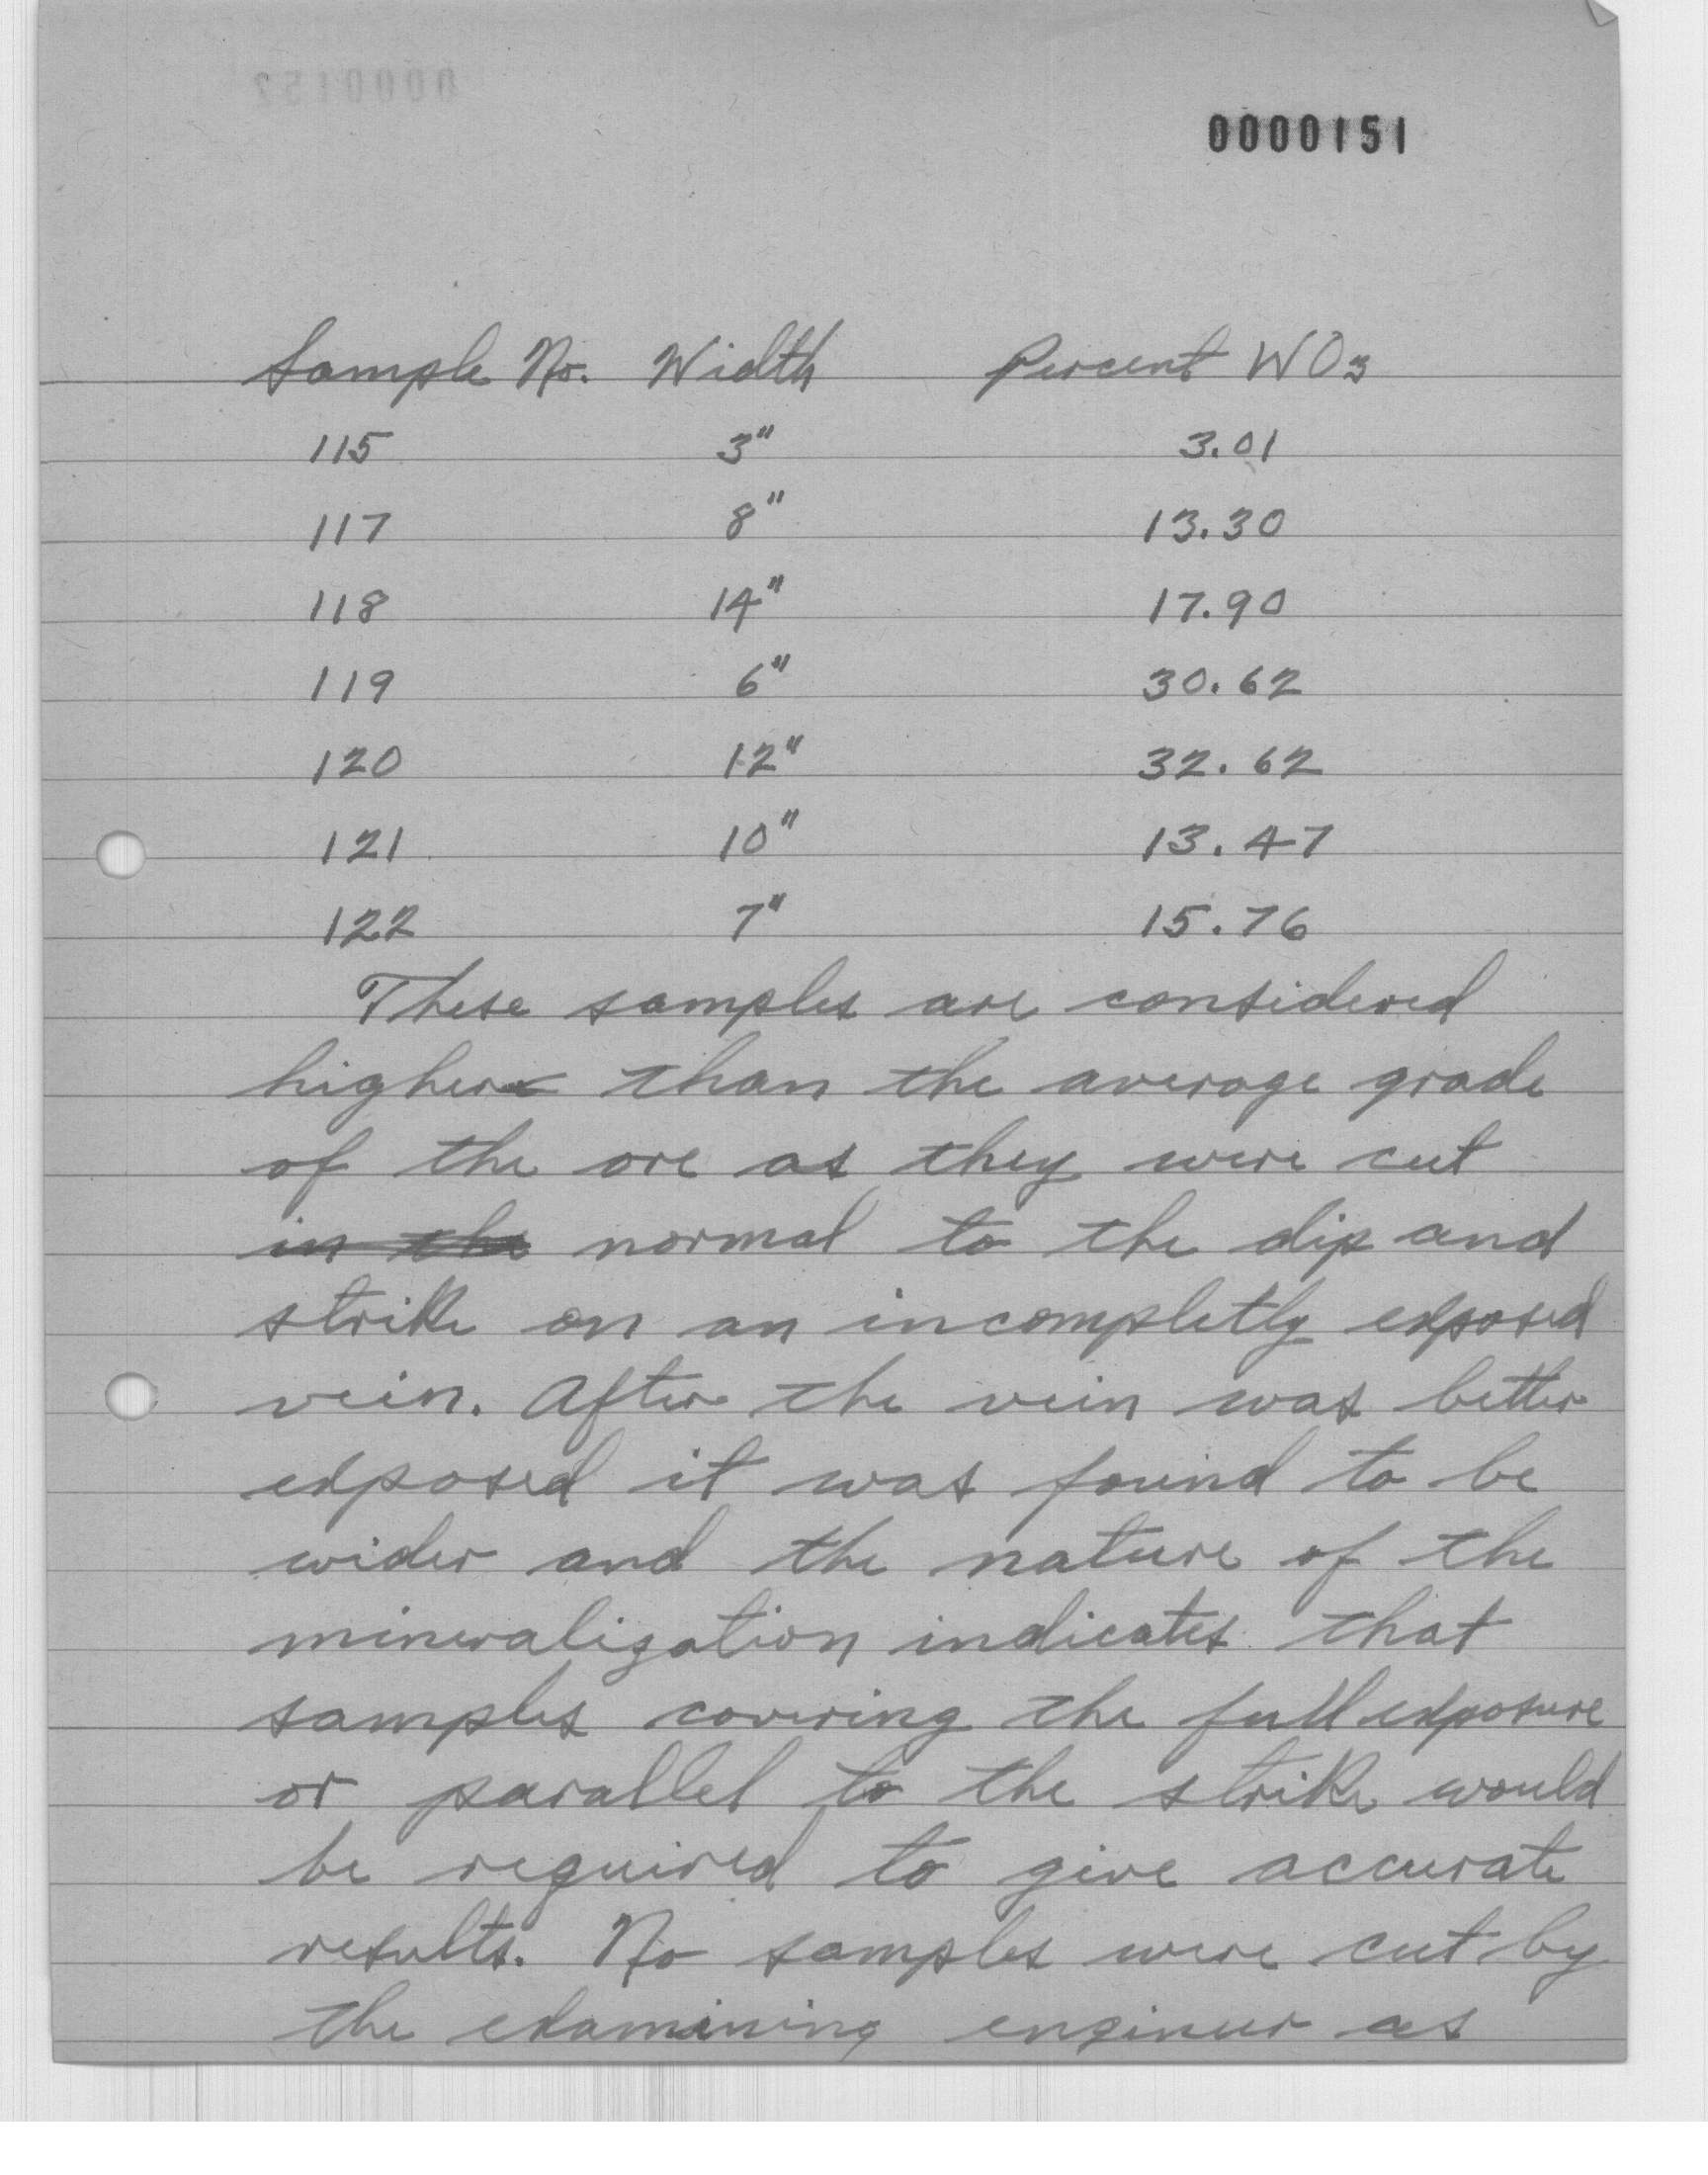 0000152
0000151
Sample No. Width Percent WO3
115 3" 3.01
117 8" 13.30
118 14" 17.90
119 6" 30.62
120 12" 32.62
121 10" 13.47
122 7" 15.76
These samples are considered
higher than the average grade
of the ore as they were cut
in the normal to the dip and
strike on an incompletly exposed
vein. After the vein was better
exposed it was found to be
wider and the nature of the
mineralization indicates that
samples covering the full exposure
or parallel to the strike would
be required to give accurate
results. No samples were cut by
the examining engineer as